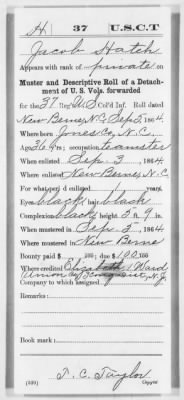 H 37 U.S.C.T
Jacob Hatch
Appears with rank of private on
Muster and Descriptive Roll of a Detach-
ment of U. S. Vols. forwarded
for the 37 Reg't U.S. Col'd Inf. Roll dated
New Berne, N.C. Sep. 5, 1864.
Where born Jones Co, N.C.
Age 36 y'rs; occupation teamster
When enlisted Sep. 3, 1864
Where enlisted New Berne, N.C.
For what period enlisted years.
Eyes black; hair black
Complexion black; height 5 ft. 9 in.
When mustered in Sep. 5, 1864
Where mustered in New Berne
Bounty paid $ 100; due $ 100
Where credited Elizabeth 1 Ward
Union Co, N.J.
Company to which assigned
Remarks:
Book mark:
T. C. Taylor
(339) Copyist